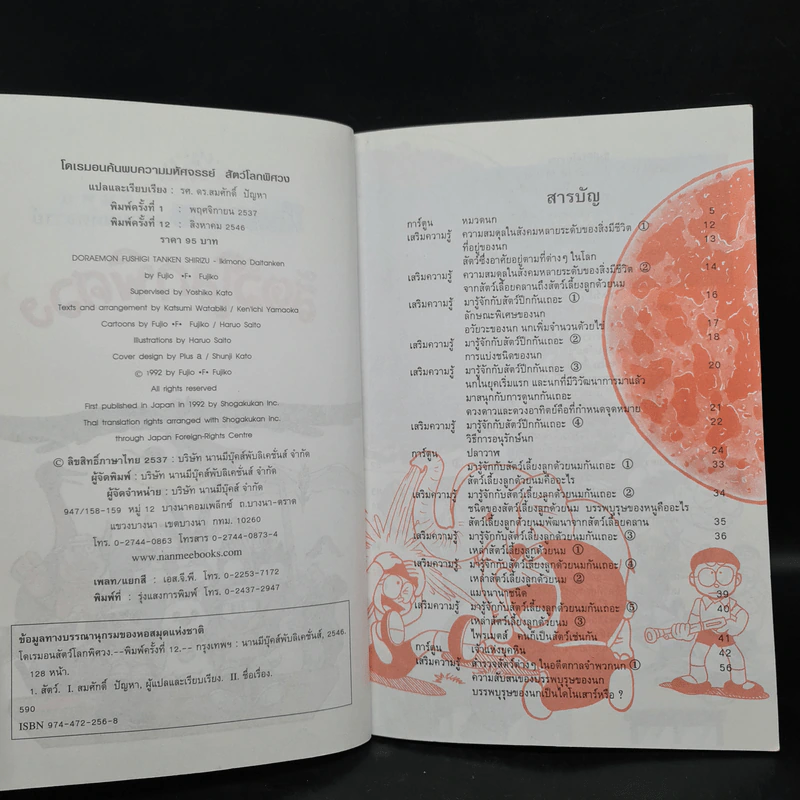 โดเรมอนค้นพบความมหัศจรรย์ สัตว์โลกพิศวง
แปลและเรียบเรียง : รศ. ดร.สมศักดิ์ ปัญหา
พิมพ์ครั้งที่ 1 : พฤศจิกายน 2537
พิมพ์ครั้งที่ 12 : สิงหาคม 2546
ราคา 95 บาท
DORAEMON FUSHIGI TANKEN SHIRIZU - Ikimono Daitanken
by Fujio •F• Fujiko
Supervised by Yoshiko Kato
Texts and arrangement by Katsumi Watabiki / Ken'ichi Yamaoka
Cartoons by Fujio •F• Fujiko / Haruo Saito
Illustrations by Haruo Saito
Cover design by Plus α / Shunji Kato
© 1992 by Fujio •F• Fujiko
All rights reserved
First published in Japan in 1992 by Shogakukan Inc.
Thai translation rights arranged with Shogakukan Inc.
through Japan Foreign-Rights Centre
© ลิขสิทธิ์ภาษาไทย 2537 : บริษัท นานมีบุ๊คส์พับลิเคชั่นส์ จำกัด
ผู้จัดพิมพ์ : บริษัท นานมีบุ๊คส์พับลิเคชั่นส์ จำกัด
ผู้จัดจำหน่าย : บริษัท นานมีบุ๊คส์ จำกัด
947/158-159 หมู่ 12 บางนาคอมเพล็กซ์ ถ.บางนา-ตราด
แขวงบางนา เขตบางนา กทม. 10260
โทร. 0-2744-0863 โทรสาร 0-2744-0873-4
www.nanmeebooks.com
เพลท/แยกสี : เอส.จี.พี. โทร. 0-2253-7172
พิมพ์ที่ : รุ่งแสงการพิมพ์ โทร. 0-2437-2947
ข้อมูลทางบรรณานุกรมของหอสมุดแห่งชาติ
โดเรมอนสัตว์โลกพิศวง.--พิมพ์ครั้งที่ 12.-- กรุงเทพฯ : นานมีบุ๊คส์พับลิเคชั่นส์, 2546.
128 หน้า.
1. สัตว์. I. สมศักดิ์ ปัญหา, ผู้แปลและเรียบเรียง. II. ชื่อเรื่อง.
590
ISBN 974-472-256-8
สารบัญ
การ์ตูน หมวดนก 5
เสริมความรู้ ความสมดุลในสังคมหลายระดับของสิ่งมีชีวิต ① 12
ที่อยู่ของนก 13
สัตว์ซึ่งอาศัยอยู่ตามที่ต่างๆ ในโลก
เสริมความรู้ ความสมดุลในสังคมหลายระดับของสิ่งมีชีวิต ② 14
จากสัตว์เลื้อยคลานถึงสัตว์เลี้ยงลูกด้วยนม
เสริมความรู้ มารู้จักกับสัตว์ปีกกันเถอะ ① 16
ลักษณะพิเศษของนก
อวัยวะของนก นกเพิ่มจำนวนด้วยไข่ 17
เสริมความรู้ มารู้จักกับสัตว์ปีกกันเถอะ ② 18
การแบ่งชนิดของนก
เสริมความรู้ มารู้จักกับสัตว์ปีกกันเถอะ ③ 20
นกในยุคเริ่มแรก และนกที่มีวิวัฒนาการมาแล้ว
มาสนุกกับการดูนกกันเถอะ
ดวงดาวและดวงอาทิตย์คือที่กำหนดจุดหมาย 21
เสริมความรู้ มารู้จักกับสัตว์ปีกกันเถอะ ④ 22
วิธีการอนุรักษ์นก
การ์ตูน ปลาวาฬ 24
มารู้จักกับสัตว์เลี้ยงลูกด้วยนมกันเถอะ ① 33
สัตว์เลี้ยงลูกด้วยนมคืออะไร
เสริมความรู้ มารู้จักกับสัตว์เลี้ยงลูกด้วยนมกันเถอะ ② 34
ชนิดของสัตว์เลี้ยงลูกด้วยนม บรรพบุรุษของหนูคืออะไร
สัตว์เลี้ยงลูกด้วยนมพัฒนาจากสัตว์เลื้อยคลาน 35
เสริมความรู้ มารู้จักกับสัตว์เลี้ยงลูกด้วยนมกันเถอะ ③ 36
เหล่าสัตว์เลี้ยงลูกด้วยนม ①
เสริมความรู้ มารู้จักกับสัตว์เลี้ยงลูกด้วยนมกันเถอะ ④
เหล่าสัตว์เลี้ยงลูกด้วยนม ②
แมวนานาชนิด 39
เสริมความรู้ มารู้จักกับสัตว์เลี้ยงลูกด้วยนมกันเถอะ ⑤ 40
เหล่าสัตว์เลี้ยงลูกด้วยนม ③
ไพรเมตส์ คนก็เป็นสัตว์เช่นกัน 41
การ์ตูน เจ้าแห่งยุคหิน 42
เสริมความรู้ สำรวจสัตว์ต่างๆ ในอดีตกาลจำพวกนก ① 56
ความสับสนของบรรพบุรุษของนก
บรรพบุรุษของนกเป็นไดโนเสาร์หรือ ?